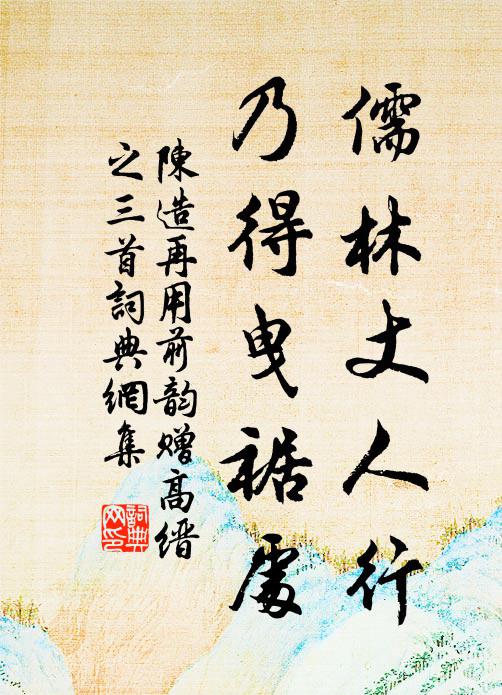 儒林丈人行
乃得曳裾處
陳造再用前韵贈高缙
之三首詞典網集
詞典网印